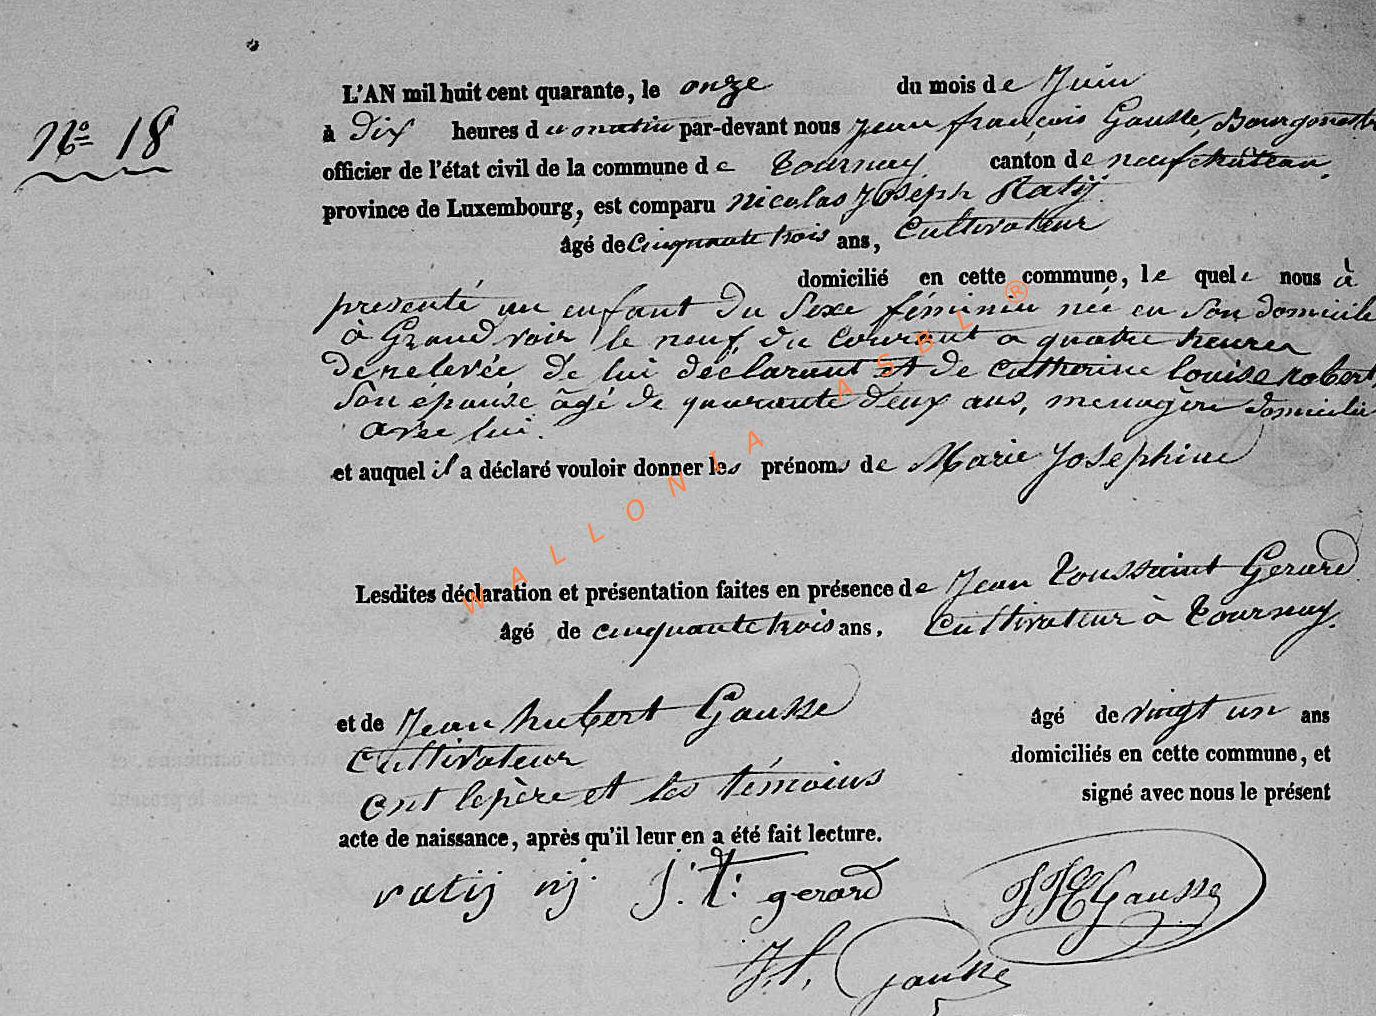 L'AN mil huit cent quarante, le onze du mois de Juin
Nº 18
à Dix heures du matin par-devant nous Jean françois Gausse, Bourgmestre
officier de l'état civil de la commune de Tournay canton de neufchâteau,
province de Luxembourg, est comparu Nicolas Joseph Ratij
âgé de Cinquante trois ans, Cultivateur
domicilié en cette commune, le quel nous à
presenté un enfant du Sexe féminin née en Son domicile
à Grand voir le neuf du Courant a quatre heures
de relevée de lui déclarant et de Catherine Louise Robert,
Son épouse âgé de quarante deux ans, menagère domicilié
avec lui.
et auquel il a déclaré vouloir donner les prénoms de Marie Josephine
Lesdites déclaration et présentation faites en présence de Jean Toussaint Gerard
âgé de cinquante trois ans, Cultivateur à Tournay.
et de Jean hubert Gausse âgé de vingt un ans
Cultivateur domiciliés en cette commune, et
ont le père et les témoins signé avec nous le présent
acte de naissance, après qu'il leur en a été fait lecture.
ratij nj. J. T. gerard JH Gausse
J.f. Gausse
WALLONIA ASBL ®